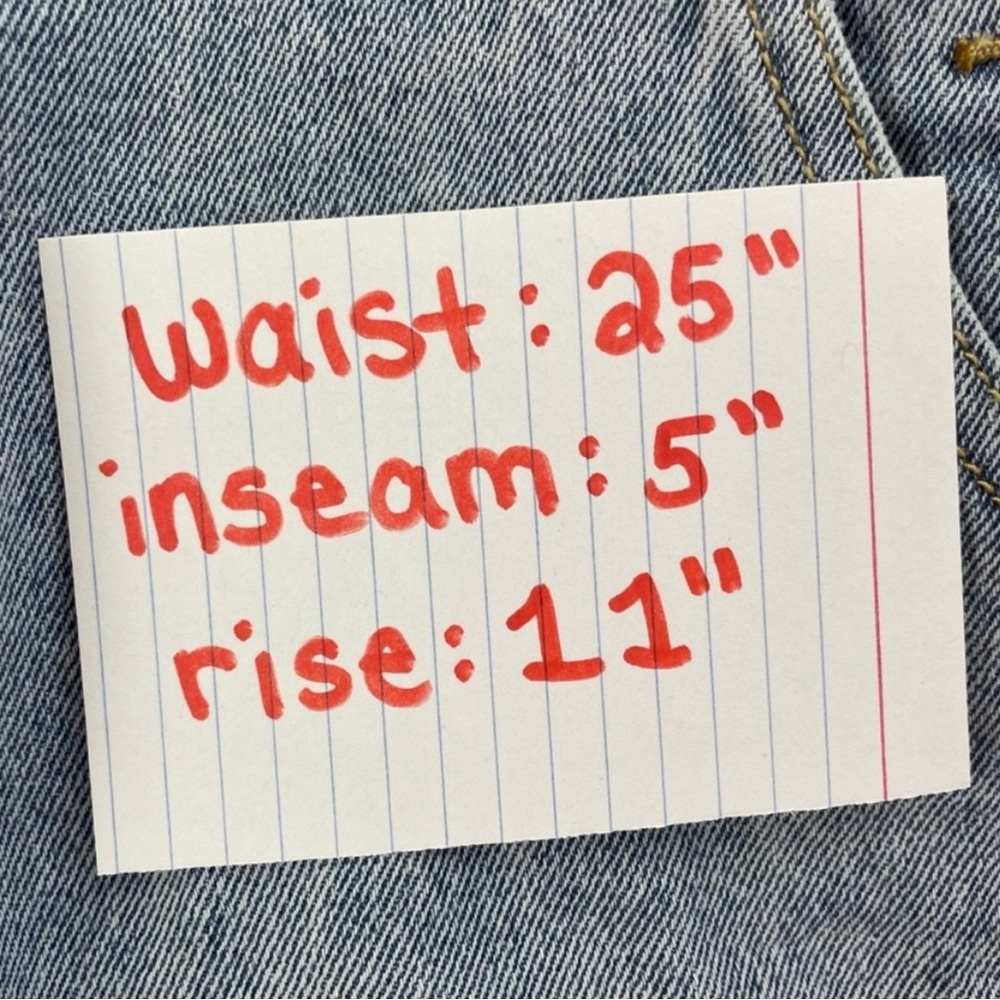 Waist: 25"
inseam: 5"
rise: 11"